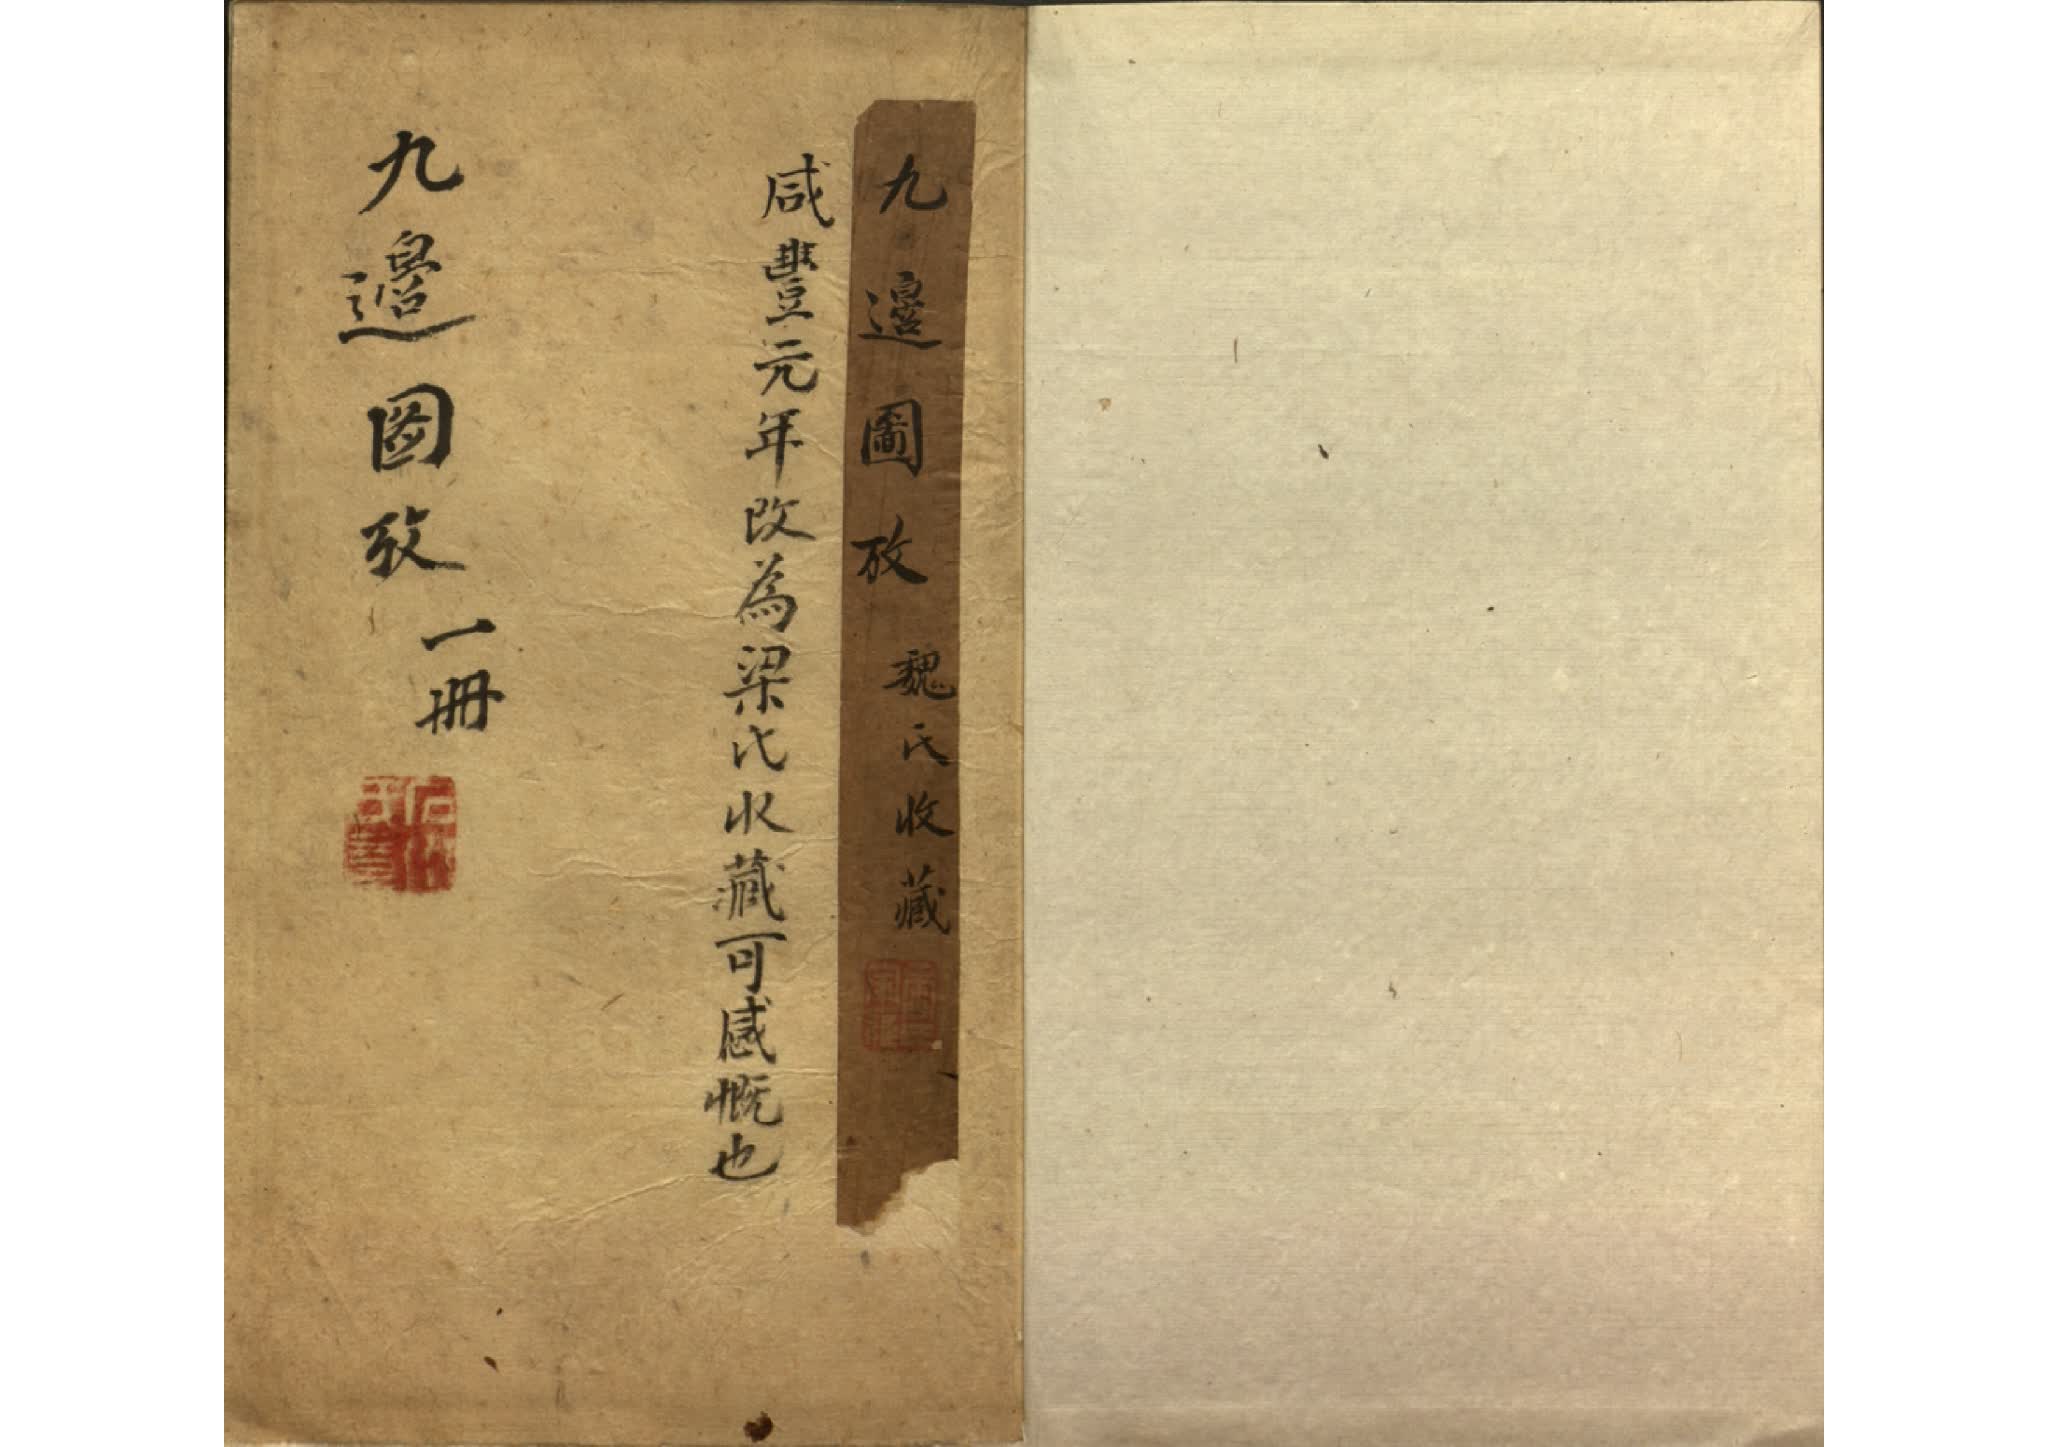 九邉圖攷 魏氏收藏
咸豐元年改為梁氏收藏可感慨也
九邉圖攷 一冊